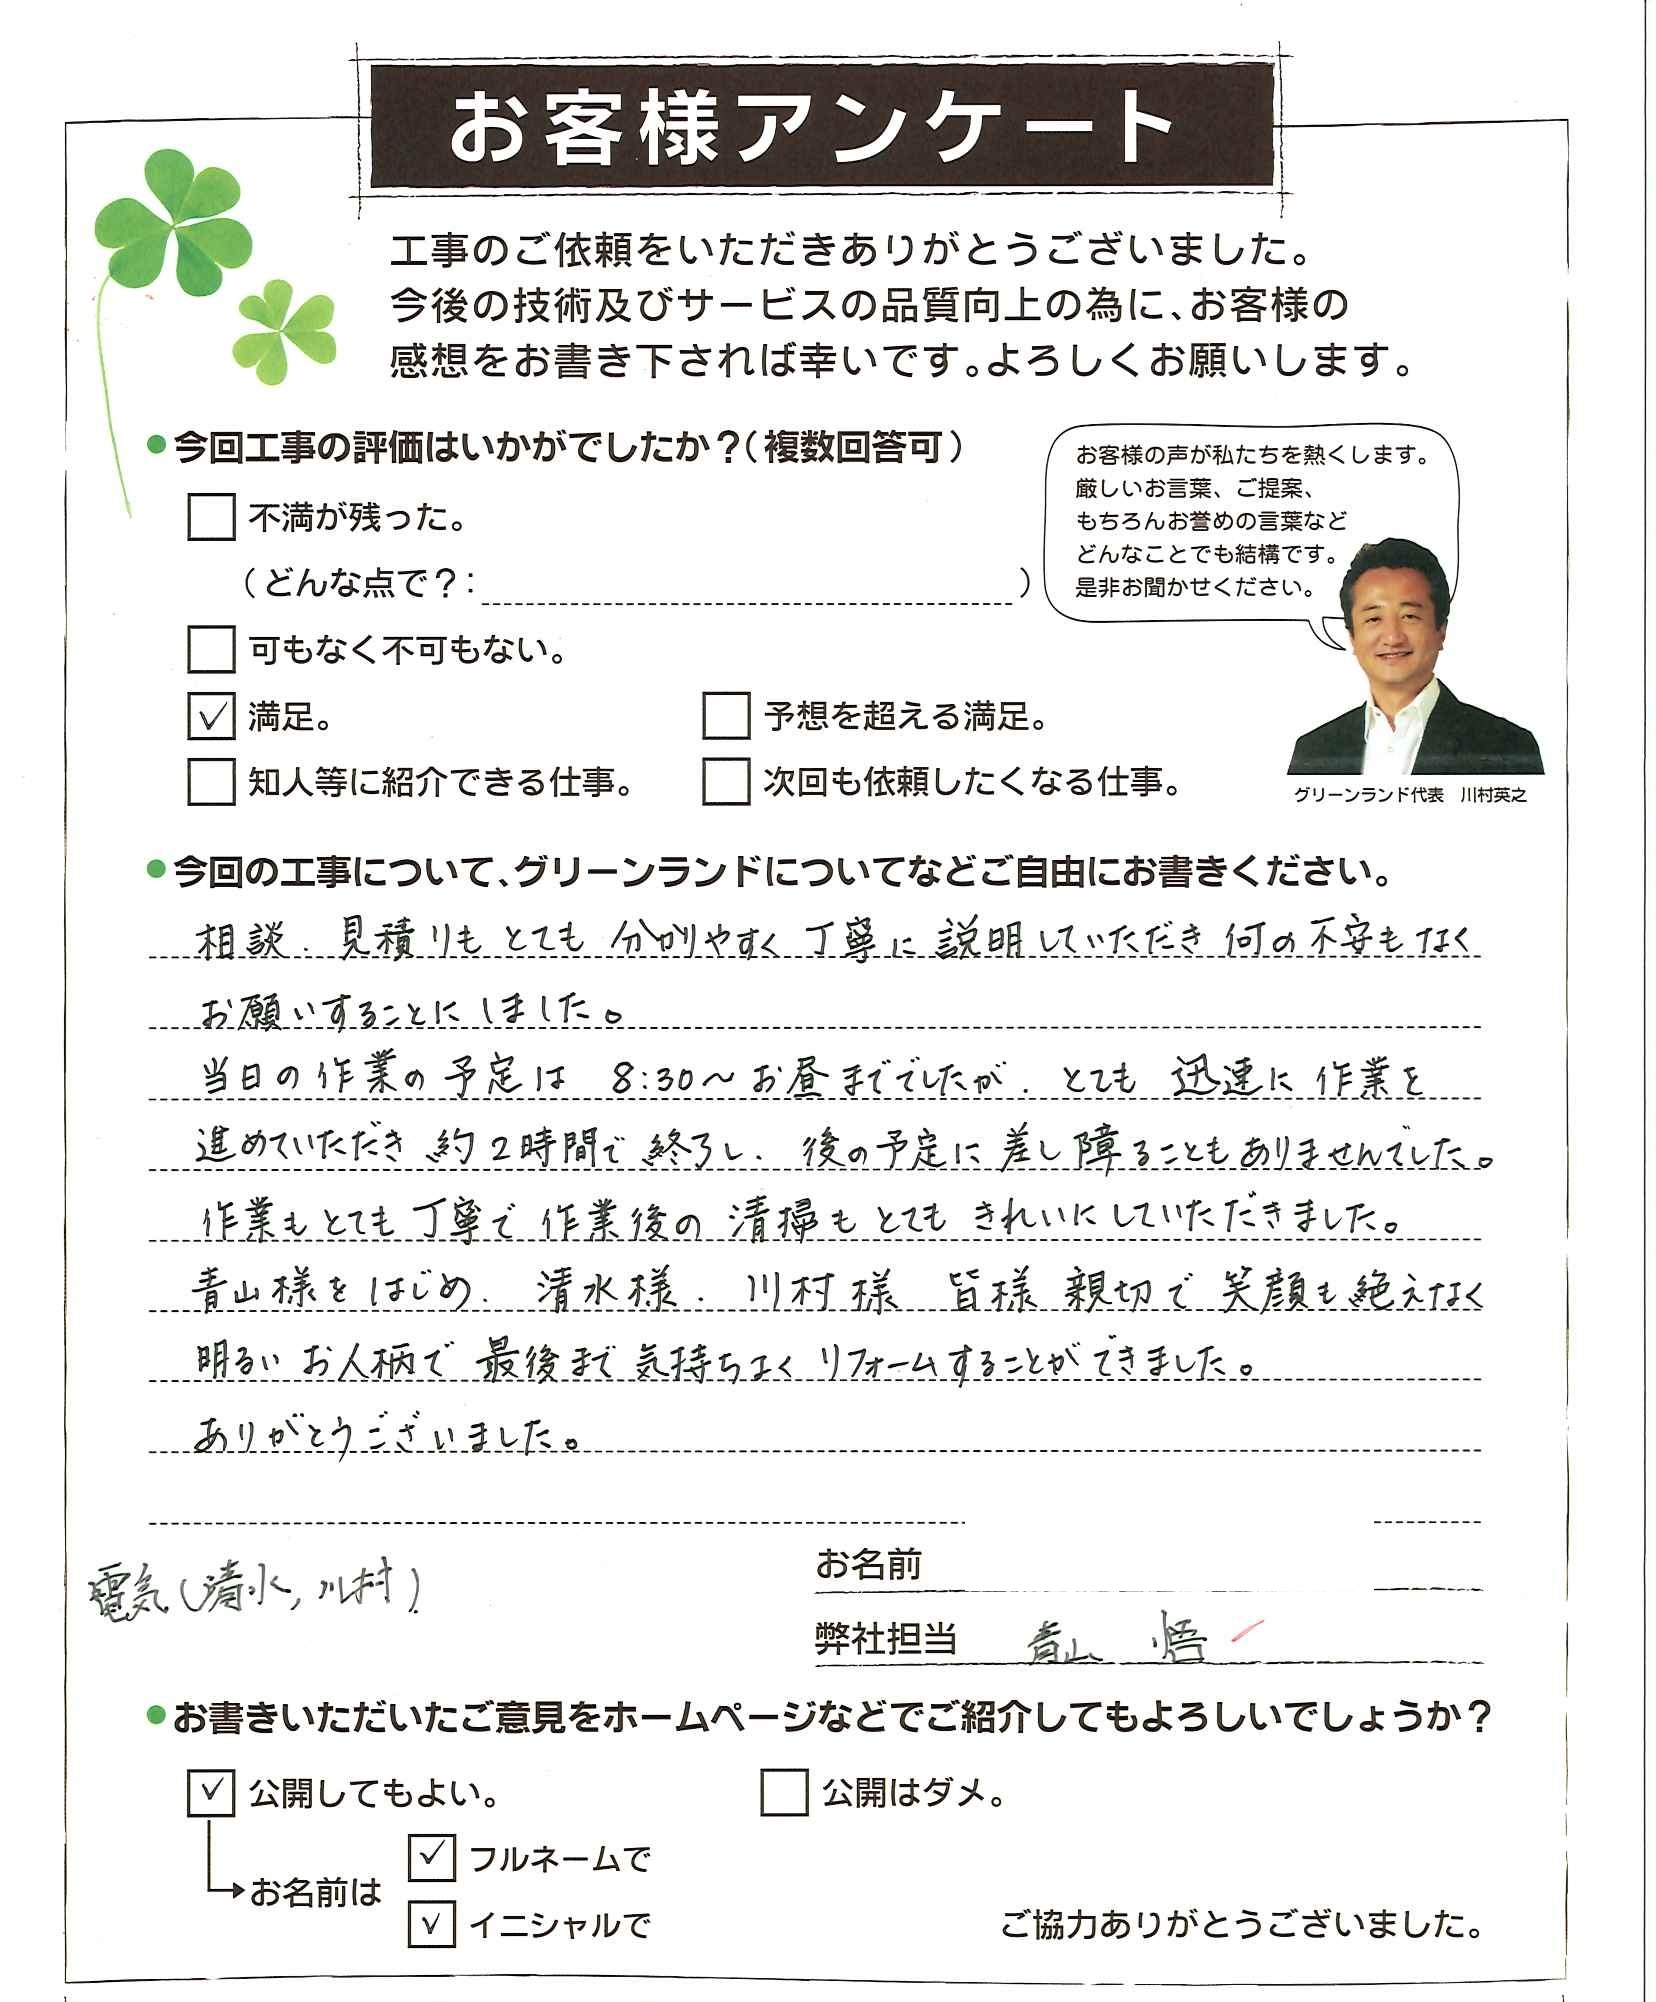 お客様アンケート
工事のご依頼をいただきありがとうございました。
今後の技術及びサービスの品質向上の為に、お客様の
感想をお書き下されば幸いです。よろしくお願いします。
●今回工事の評価はいかがでしたか？（複数回答可）
お客様の声が私たちを熱くします。
厳しいお言葉、ご提案、
もちろんお誉めの言葉など
どんなことでも結構です。
是非お聞かせください。
不満が残った。
（どんな点で？：　）
可もなく不可もない。
✓ 満足。
予想を超える満足。
知人等に紹介できる仕事。
次回も依頼したくなる仕事。
グリーンランド代表　川村英之
●今回の工事について、グリーンランドについてなどご自由にお書きください。
相談、見積りもとても分かりやすく丁寧に説明していただき何の不安もなく
お願いすることにしました。
当日の作業の予定は 8:30～お昼まででしたが、とても迅速に作業を
進めていただき約2時間で終了し、後の予定に差し障ることもありませんでした。
作業もとても丁寧で作業後の清掃もとてもきれいにしていただきました。
青山様をはじめ、清水様、川村様 皆様親切で笑顔も絶えなく
明るいお人柄で最後まで気持ちよくリフォームすることができました。
ありがとうございました。
お名前
電気(清水,川村)
弊社担当 青山 悟
●お書きいただいたご意見をホームページなどでご紹介してもよろしいでしょうか？
✓ 公開してもよい。
公開はダメ。
お名前は
✓ フルネームで
✓ イニシャルで
ご協力ありがとうございました。